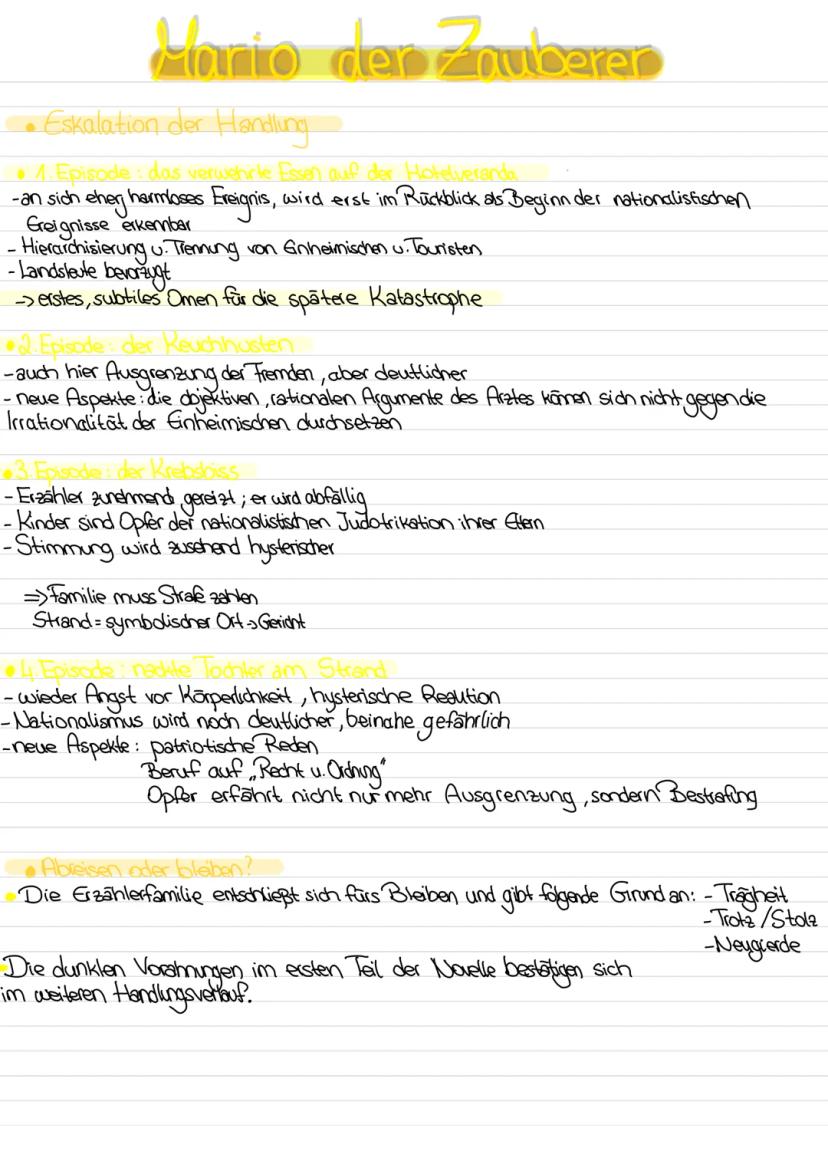 Mario der Zauberer
• Eskalation der Handlung
• 1. Episode: das verwehrte Essen auf der Hotelveranda
- an sich eher harmloses Ereignis, wird erst im Rückblick als Beginn der nationalistischen
Ereignisse erkennbar
- Hierarchisierung u. Trennung von Einheimischen u. Touristen
- Landsleute bevorzugt
-> erstes, subtiles Omen für die spätere Katastrophe
• 2. Episode: der Keuchhusten
- auch hier Ausgrenzung der Fremden, aber deutlicher
- neue Aspekte: die objektiven, rationalen Argumente des Arztes können sich nicht gegen die
Irrationalität der Einheimischen durchsetzen
• 3. Episode: der Krebsbiss
- Erzähler zunehmend gereizt; er wird abfällig
- Kinder sind Opfer der nationalistischen Judotrikation ihrer Eltern
- Stimmung wird zusehend hysterischer
=> Familie muss Strafe zahlen
Strand = symbolischer Ort -> Gericht
• 4. Episode: nackte Tochter am Strand
- wieder Angst vor Körperlichkeit, hysterische Reaktion
- Nationalismus wird noch deutlicher, beinahe gefährlich
- neue Aspekte: patriotische Reden
Beruf auf „Recht u. Ordnung"
Opfer erfährt nicht nur mehr Ausgrenzung, sondern Bestrafung
• Abreisen oder bleiben?
• Die Erzählerfamilie entschließt sich fürs Bleiben und gibt folgende Grund an: - Trägheit
- Trotz / Stolz
- Neugierde
• Die dunklen Vorahnungen im ersten Teil der Novelle bestätigen sich
im weiteren Handlungsverlauf.